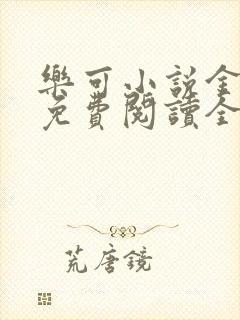 樂可小說全
免費閱讀全
荒唐鏡